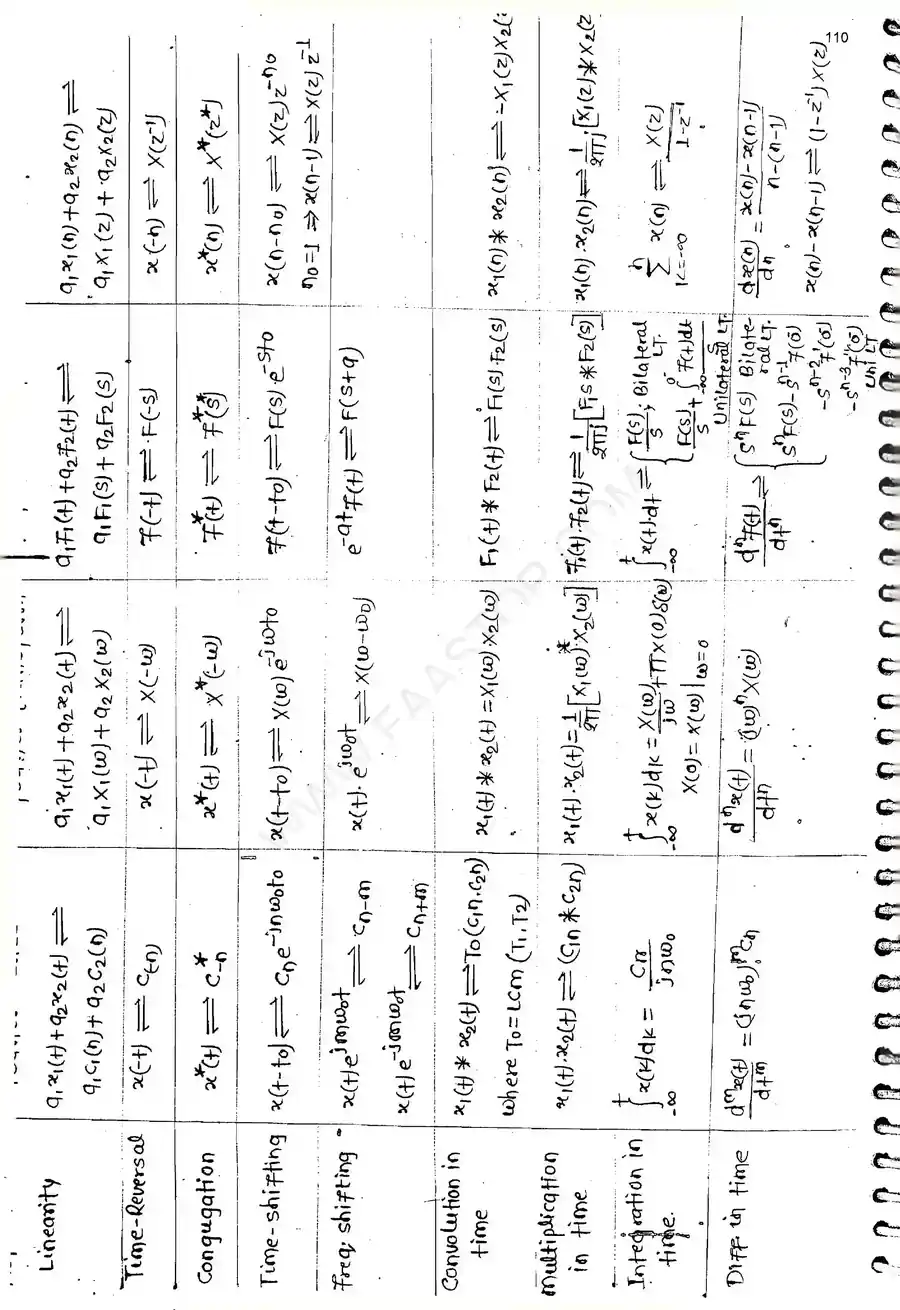 110
Linearity
a₁x₁(t)+a₂x₂(t) ⇌
a₁c₁(n)+a₂c₂(n)
a₁x₁(t)+a₂x₂(t) ⇌
a₁X₁(ω)+a₂X₂(ω)
a₁F₁(t)+a₂F₂(t) ⇌
a₁F₁(s)+a₂F₂(s)
a₁x₁(n)+a₂x₂(n) ⇌
a₁X₁(z)+a₂X₂(z)
Time-Reversal
x(-t) ⇌ C(-n)
x(-t) ⇌ X(-ω)
F(-t) ⇌ F(-s)
x(-n) ⇌ X(z⁻¹)
Conqugation
x*(t) ⇌ C*₋ₙ
x*(t) ⇌ X*(-ω)
F*(t) ⇌ F*(s*)
x*(n) ⇌ X*(z*)
Time-shifting
x(t-t₀) ⇌ Cₙe^(-jnω₀t₀)
x(t-t₀) ⇌ X(ω)e^(-jωt₀)
F(t-t₀) ⇌ F(s)·e^(-st₀)
x(n-n₀) ⇌ X(z)z^(-n₀)
n₀=1 ⇒ x(n-1) ⇌ X(z)z⁻¹
Freq; shifting
x(t)e^(jmω₀t) ⇌ Cₙ₋ₘ
x(t)e^(-jmω₀t) ⇌ Cₙ₊ₘ
x(t)·e^(jω₀t) ⇌ X(ω-ω₀)
e^(-at)F(t) ⇌ F(s+a)
Convolution in
time
x₁(t) * x₂(t) ⇌ T₀(C₁ₙ.C₂ₙ)
where T₀ = LCM (T₁,T₂)
x₁(t) * x₂(t) = X₁(ω)·X₂(ω)
F₁(t) * F₂(t) ⇌ F₁(s)·F₂(s)
x₁(n) * x₂(n) ⇌ -X₁(z)X₂(
Multiplication
in time
x₁(t)·x₂(t) ⇌ (C₁ₙ * C₂ₙ)
x₁(t)·x₂(t) = 1/2π [X₁(ω) * X₂(ω)]
F₁(t)·F₂(t) ⇌ 1/2πj [F₁s * F₂(s)]
x₁(n)·x₂(n) ⇌ 1/2πj [X₁(z) * X₂(z
Integration in
time.
∫₋∞ᵗ x(k)dk = Cₙ/jnω₀
∫₋∞ᵗ x(k)dk = X(ω)/jω + πX(0)δ(ω)
X(0) = X(ω)|ω=0
∫₋∞ᵗ x(t)dt ⇌ { F(s)/s ; Bilateral LT.
F(s)/s + ∫₋∞^0⁻ F(t)dt/s
Unilateral LT.
∑ⁿ K=-∞ x(n) ⇌ X(z)/1-z⁻¹
Diff in time
dᵐx(t)/dtᵐ = (jnω₀)ᵐ·Cₙ
dⁿx(t)/dtⁿ = (jω)ⁿX(ω)
dⁿF(t)/dtⁿ ⇌ { sⁿF(s) Bilateral LT.
sⁿF(s)-sⁿ⁻¹F(0̄)
-sⁿ⁻²F'(0̄)
-sⁿ⁻³F''(0̄)
Uni LT
dx(n)/dn = x(n)-x(n-1)/n-(n-1)
x(n)-x(n-1) ⇌ (1-z⁻¹)X(z)